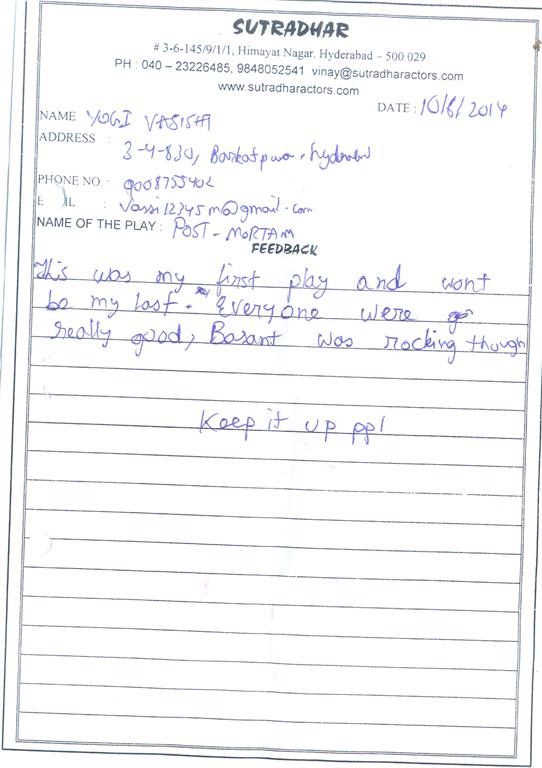 SUTRADHAR
# 3-6-145/9/1/1, Himayat Nagar. Hyderabad – 500 029
PH : 040 – 23226485, 9848052541 vinay@sutradharactors.com
www.sutradharactors.com
DATE : 10/8/2014
NAME YOGI VASISHT
ADDRESS :
3-4-830, Barkatpura, hyderabad
PHONE NO. : 9008755402
E IL : vassi12345m@gmail.com
NAME OF THE PLAY : POST - MORTAM
FEEDBACK
This was my first play and wont
be my last. Everyone were
really good, Basant was rocking though
Keep it up ppl